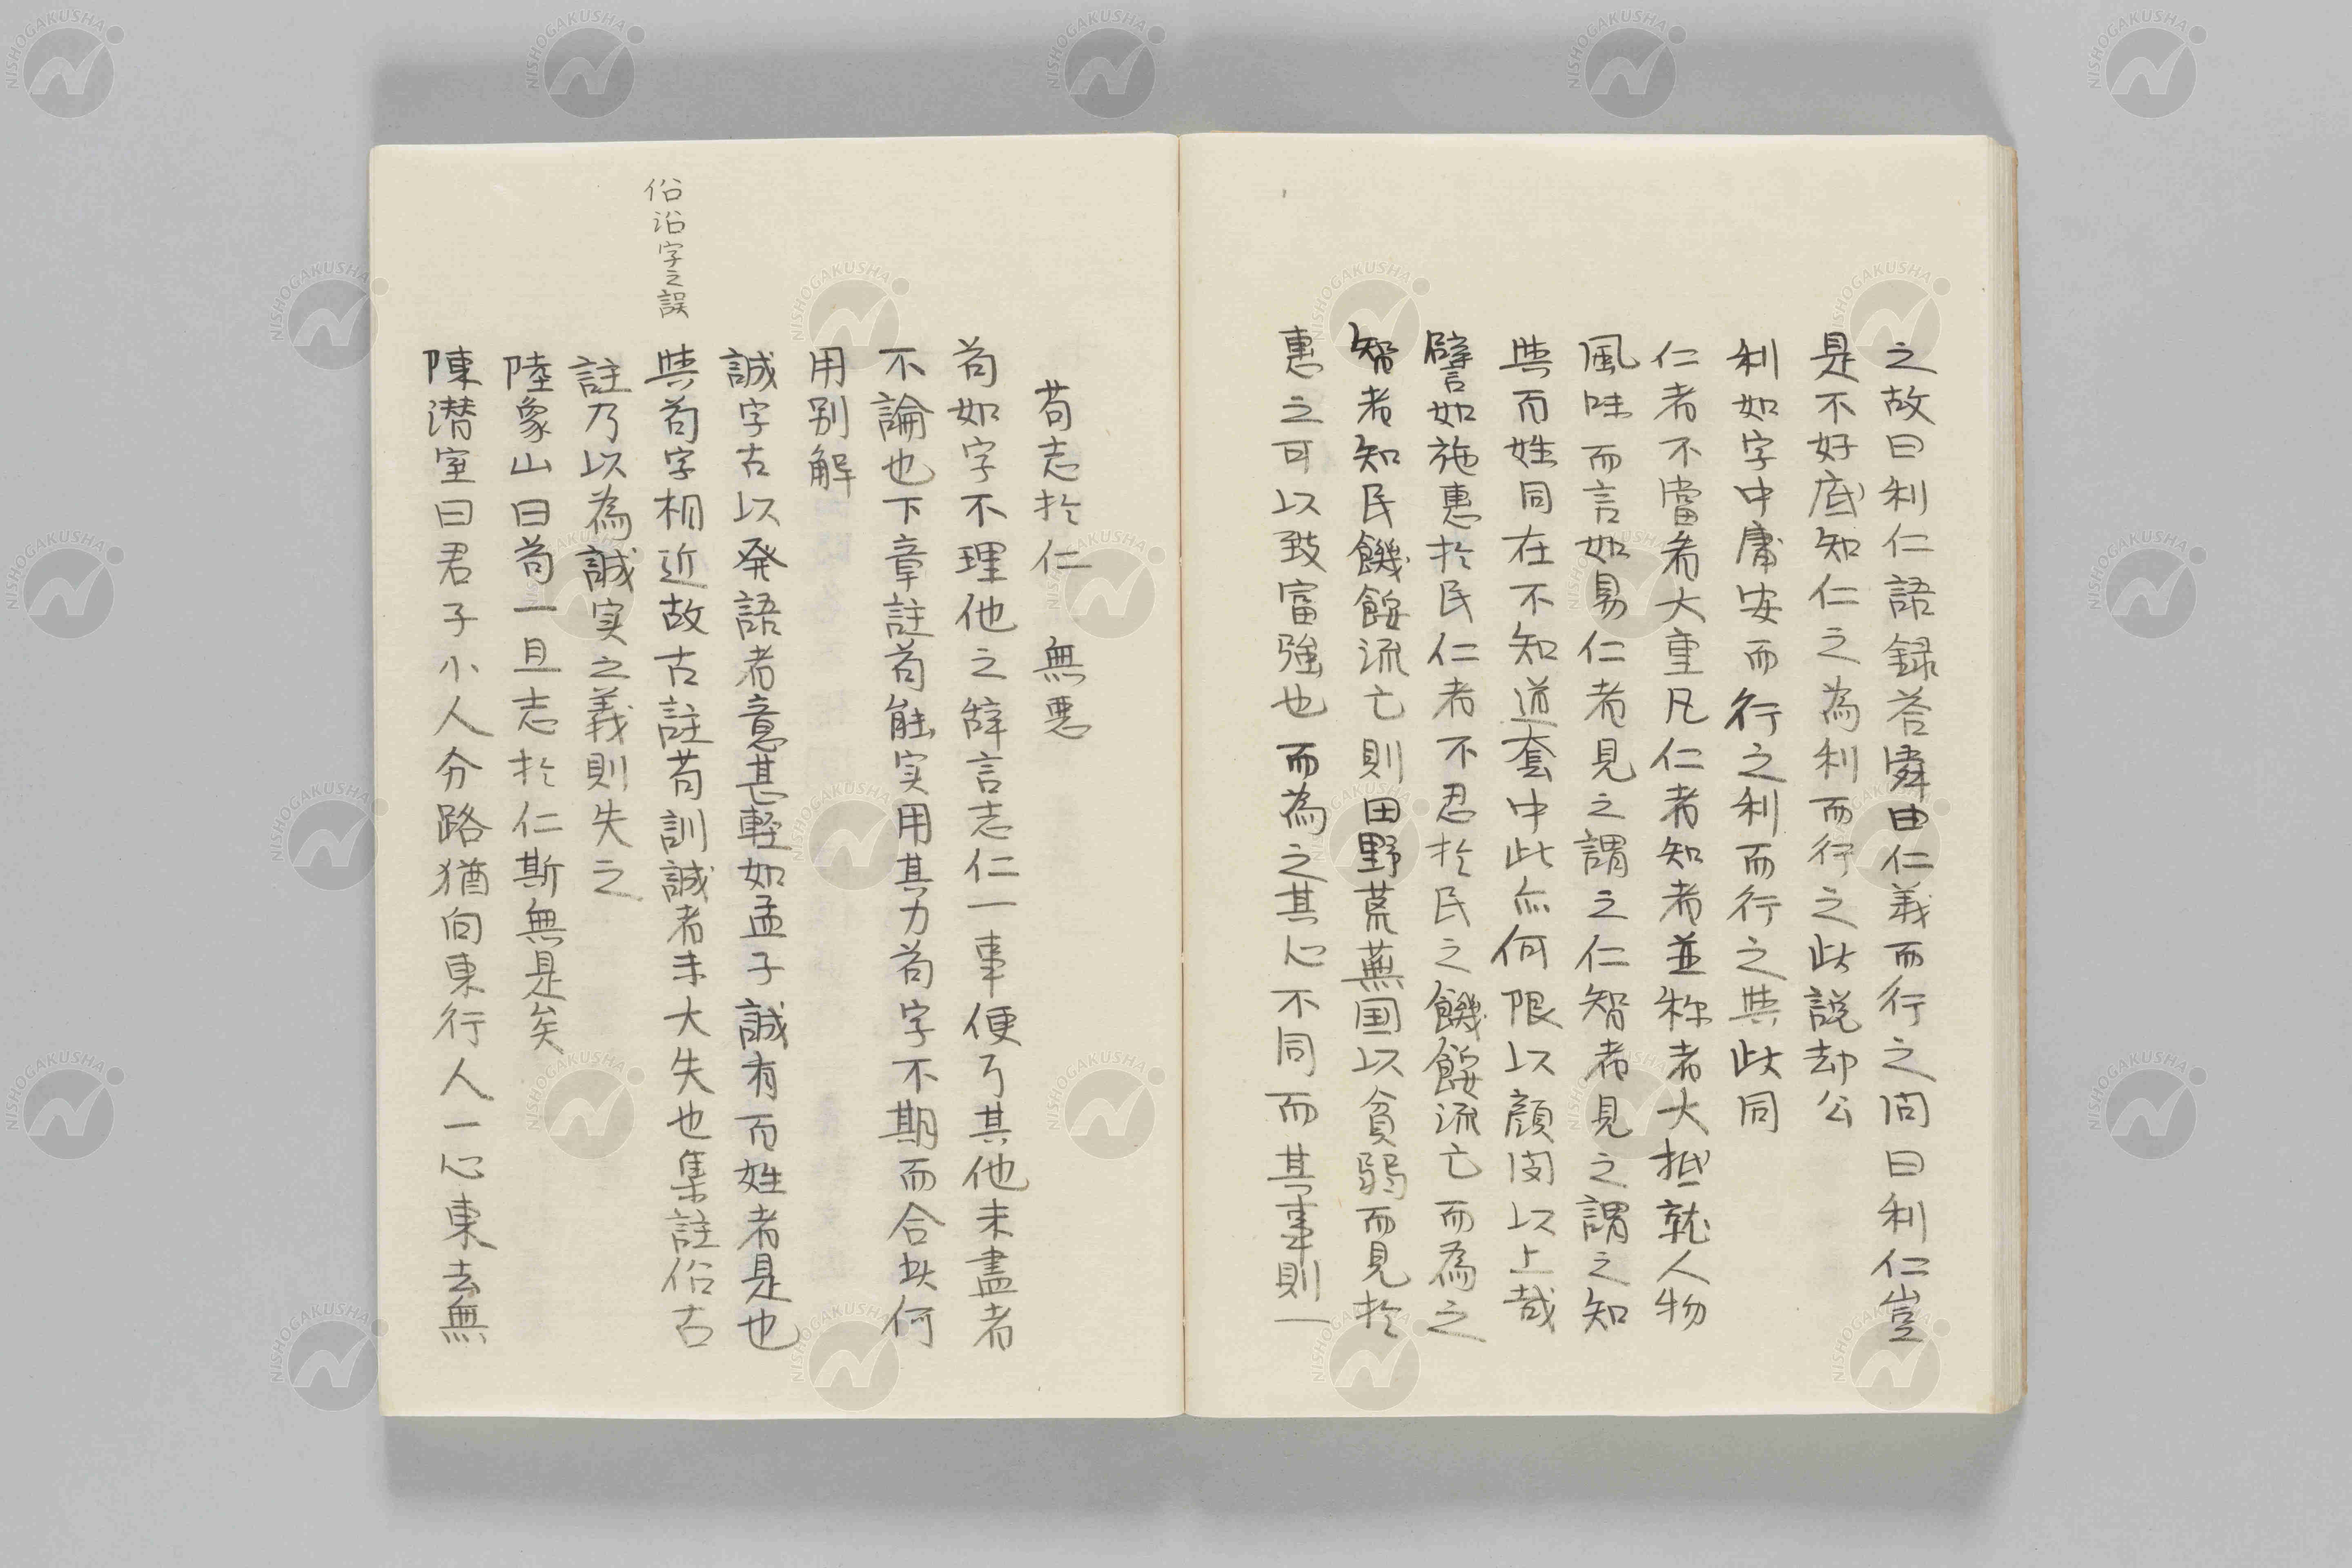 之故曰利仁語録荅舜由仁義而行之问曰利仁豈
是不好底知仁之為利而行之此説却公
利如字中庸安而行之利而行之與此同
仁者不當看大重凡仁者知者並称者大抵就人物
風味而言如易仁者見之謂之仁智者見之謂之知
與百姓同在不知道套中此亦何限以顔闵以上哉
譬如施惠於民仁者不忍於民之饑餒流亡而為之
智者知民饑餒流亡則田野荒蕪国以貧弱而見於
惠之可以致富強也而為之其心不同而其事則一
苟志於仁 無悪
苟如字不理他之辞言志仁一事便了其他未盡者
不論也下章註苟能実用其力苟字不期而合此何
用别解
誠字古以発語者意甚軽如孟子誠有百姓者是也
與苟字相近故古註苟訓誠者未大失也集註俗古
註乃以為誠実之義則失之
陸象山曰苟一旦志於仁斯無是矣
陳潜室曰君子小人分路猶向東行人一心東去無
俗沿字之誤
NISHOGAKUSHA